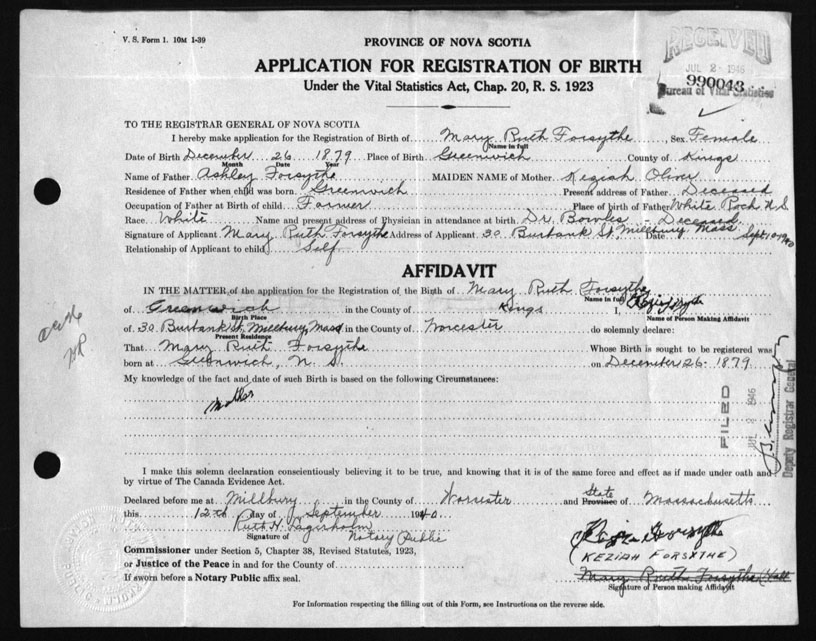 V. S. Form 1. 10M 1-39
PROVINCE OF NOVA SCOTIA
RECEIVED
JUL 2 - 1946
990043
Bureau of Vital Statistics
APPLICATION FOR REGISTRATION OF BIRTH
Under the Vital Statistics Act, Chap. 20, R. S. 1923
TO THE REGISTRAR GENERAL OF NOVA SCOTIA
I hereby make application for the Registration of Birth of Mary Ruth Forsythe, Sex Female
Name in full
Date of Birth December 26 1879 Place of Birth Greenwich County of Kings
Month Date Year
Name of Father Ashley Forsythe MAIDEN NAME of Mother Keziah Oliver
Residence of Father when child was born Greenwich Present address of Father Deceased
Occupation of Father at Birth of child Farmer Place of birth of Father White Rock N.S
Race White Name and present address of Physician in attendance at birth Dr. Bowles - Deceased
Signature of Applicant Mary Ruth Forsythe Address of Applicant 30 Burbank St, Millbury Mass Date Sept 10 1940
Relationship of Applicant to child Self
AFFIDAVIT
IN THE MATTER of the application for the Registration of the Birth of Mary Ruth Forsythe
Name in full
of Greenwich in the County of Kings I,
Birth Place Name of Person Making Affidavit
of 30 Burbank St. Millbury, Mass in the County of Worcester do solemnly declare:
Present Residence
That Mary Ruth Forsythe Whose Birth is sought to be registered was
born at Greenwich, N. S. on December 26 - 1879.
My knowledge of the fact and date of such Birth is based on the following Circumstances:
Mother
FILED
JUL 2 1946
Deputy Registrar General
I make this solemn declaration conscientiously believing it to be true, and knowing that it is of the same force and effect as if made under oath and
by virtue of The Canada Evidence Act.
Declared before me at Millbury in the County of Worcester and State Province of Massachusetts
this 12th day of September 1940
Ruth H. Lagerholm
Signature of Notary Public
(KEZIAH FORSYTHE)
Commissioner under Section 5, Chapter 38, Revised Statutes, 1923,
or Justice of the Peace in and for the County of
Mary Ruth Forsythe
If sworn before a Notary Public affix seal.
Signature of Person making Affidavit
For Information respecting the filling out of this Form, see Instructions on the reverse side.